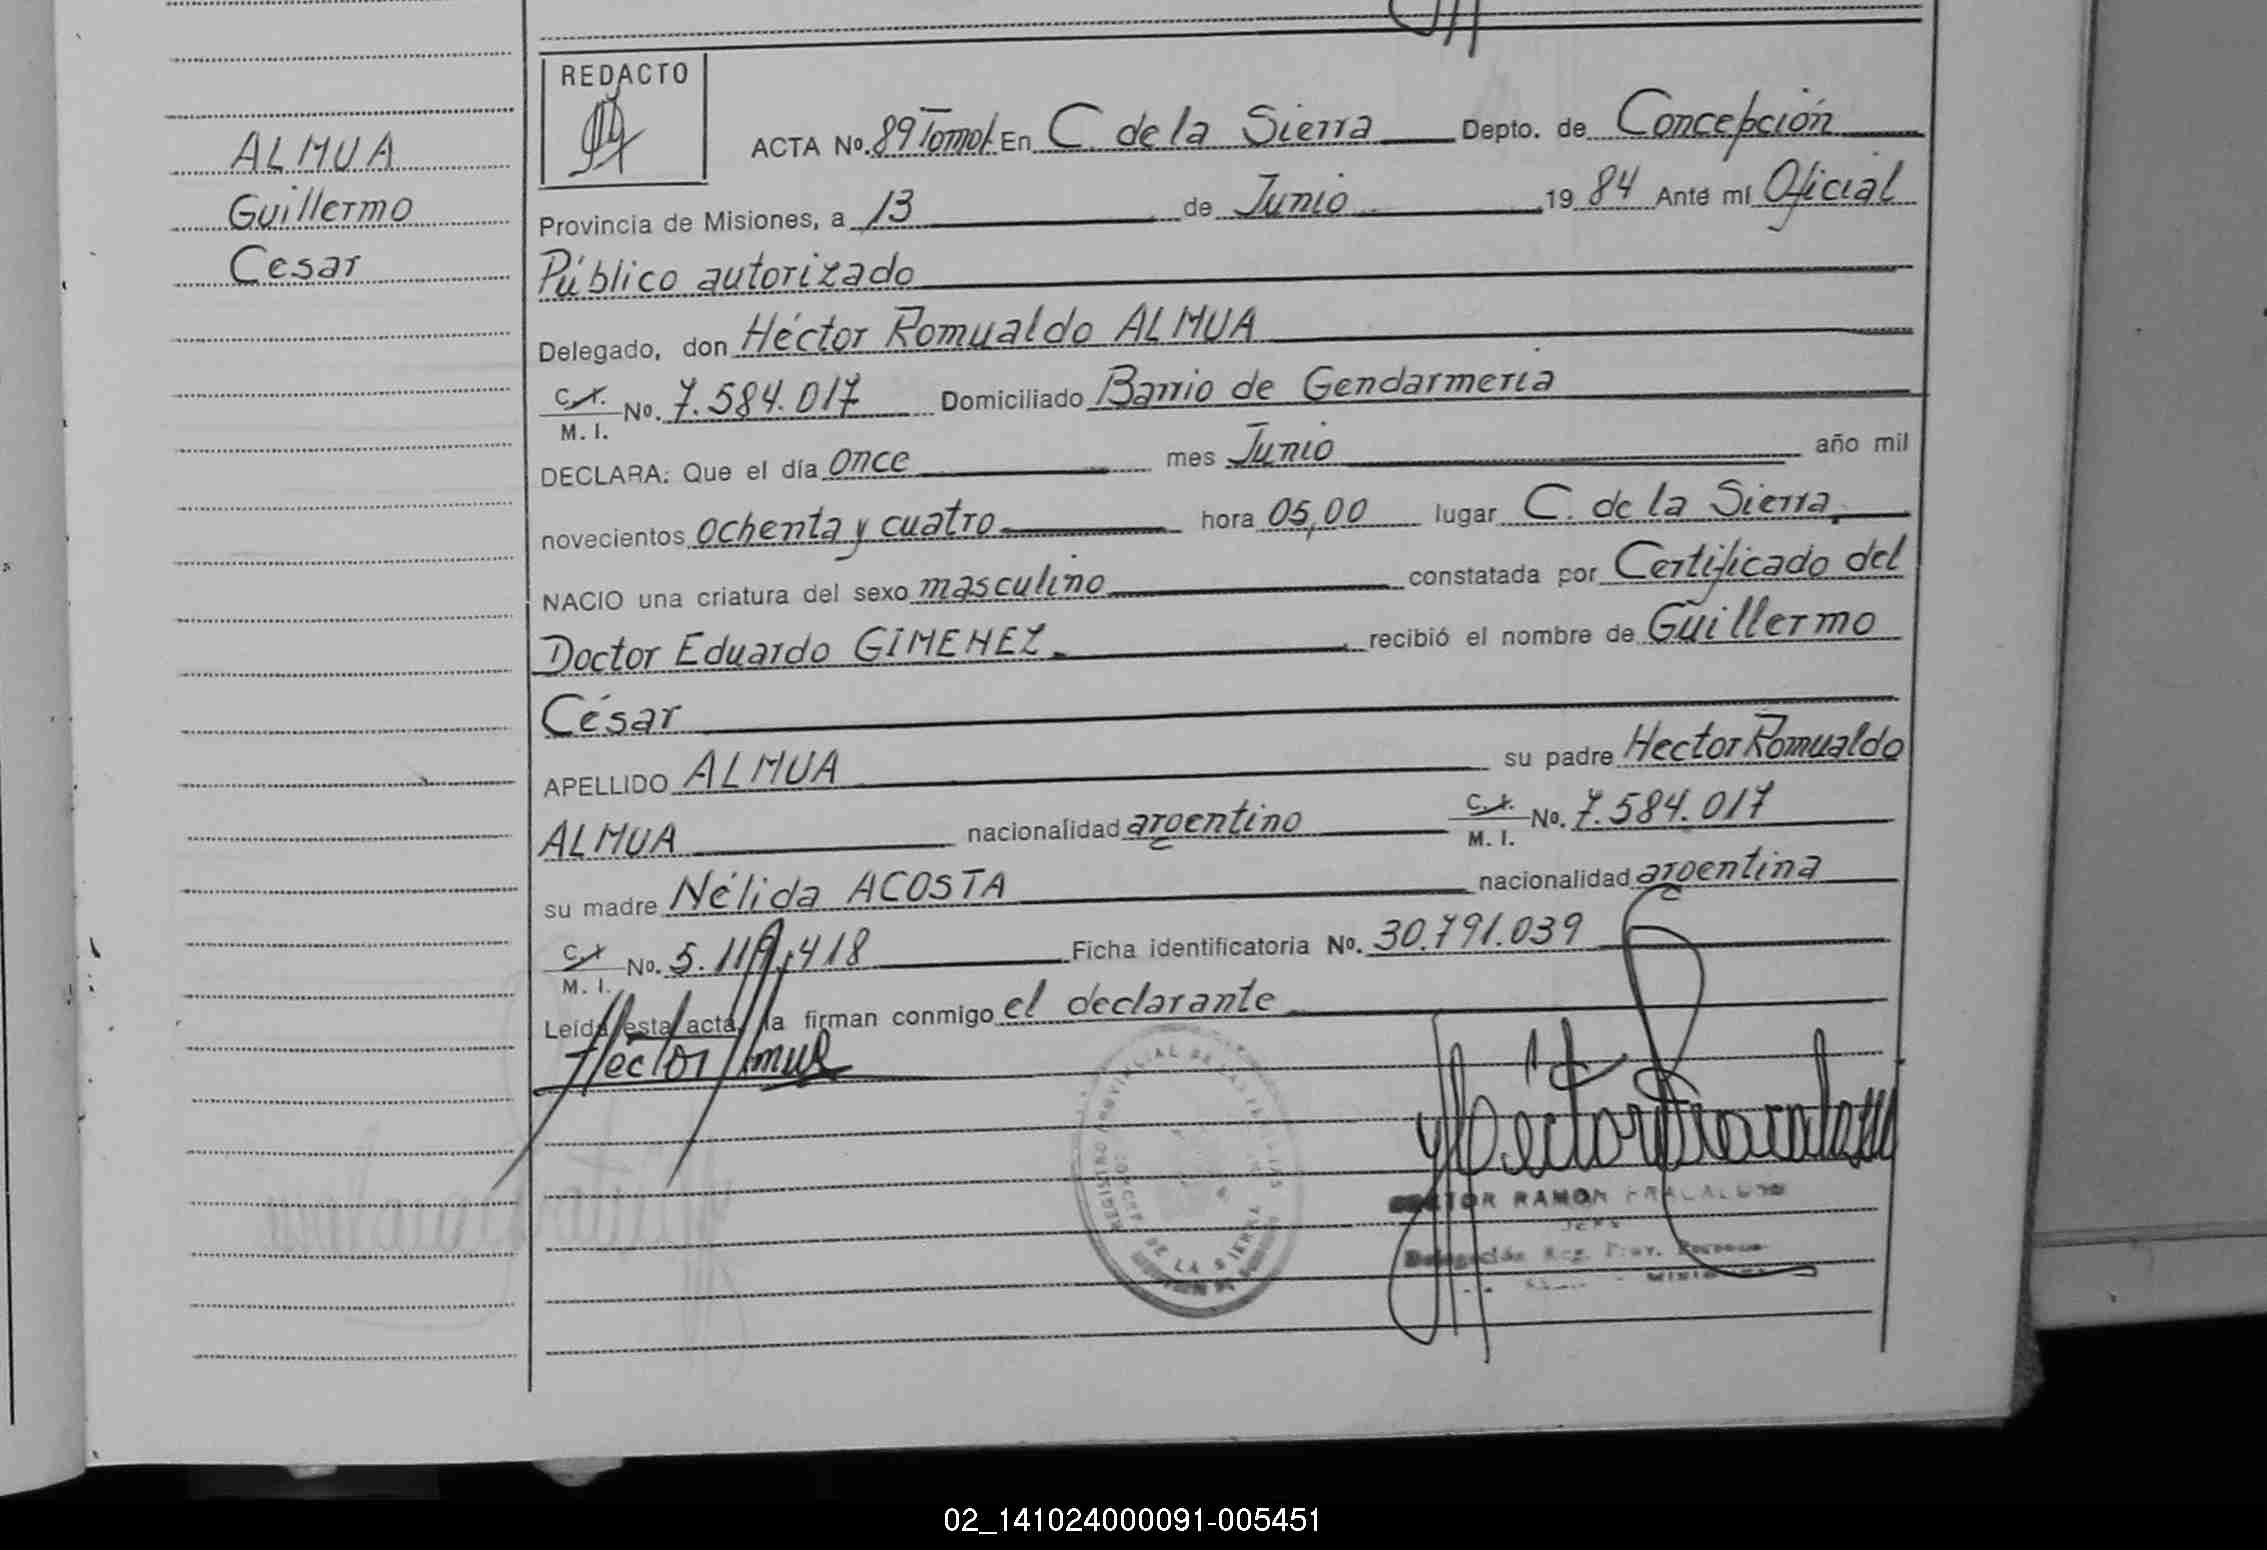 ALMUA
Guillermo
Cesar
REDACTO
ACTA No. 89 Tomo I En C. de la Sierra Depto. de Concepción
Provincia de Misiones, a 13 de Junio 19 84 Ante mí Oficial
Público autorizado
Delegado, don Héctor Romualdo ALMUA
C.I. M. I. No. 7.584.017 Domiciliado Barrio de Gendarmería
DECLARA: Que el día once mes Junio año mil
novecientos ochenta y cuatro hora 05,00 lugar C. de la Sierra
NACIO una criatura del sexo masculino constatada por Certificado del
Doctor Eduardo GIMENEZ recibió el nombre de Guillermo
César
APELLIDO ALMUA su padre Hector Romualdo
ALMUA nacionalidad argentino C.I. M. I. No. 7.584.017
su madre Nélida ACOSTA nacionalidad argentina
C.I. M. I. No. 5.119.418 Ficha identificatoria No. 30.791.039
Leída esta acta, la firman conmigo el declarante
Hector
REGISTRO PROVINCIAL DE LAS
DE LA SIERRA
HECTOR RAMON
JEFE
Delegación Reg. Prov.
02_141024000091-005451